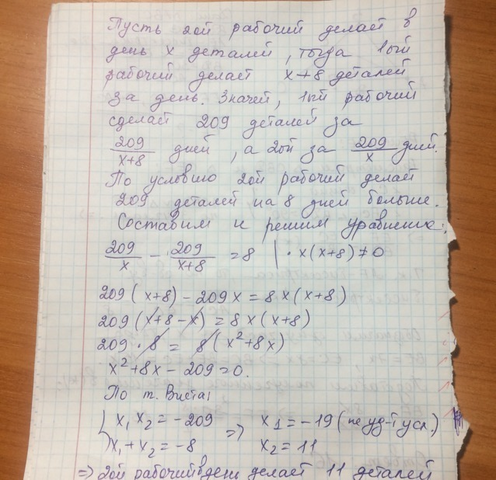 Пусть 2ой рабочий делает в
день x деталей, тогда 1ый
рабочий делает x+8 деталей
за день. Значит, 1ый рабочий
сделает 209 деталей за
209/(x+8) дней, а 2ой за 209/x дней.
По условию 2ой рабочий делает
209 деталей на 8 дней больше.
Составим и решим уравнение:
209/x - 209/(x+8) = 8 | · x(x+8) ≠ 0
209(x+8) - 209x = 8x(x+8)
209(x+8-x) = 8x(x+8)
209 · 8 = 8(x²+8x)
x²+8x-209=0.
По т. Виета:
x₁x₂ = -209 => x₁ = -19 (не уд-т усл.)
x₁+x₂ = -8 x₂ = 11
=> 2ой рабочий в день делает 11 деталей